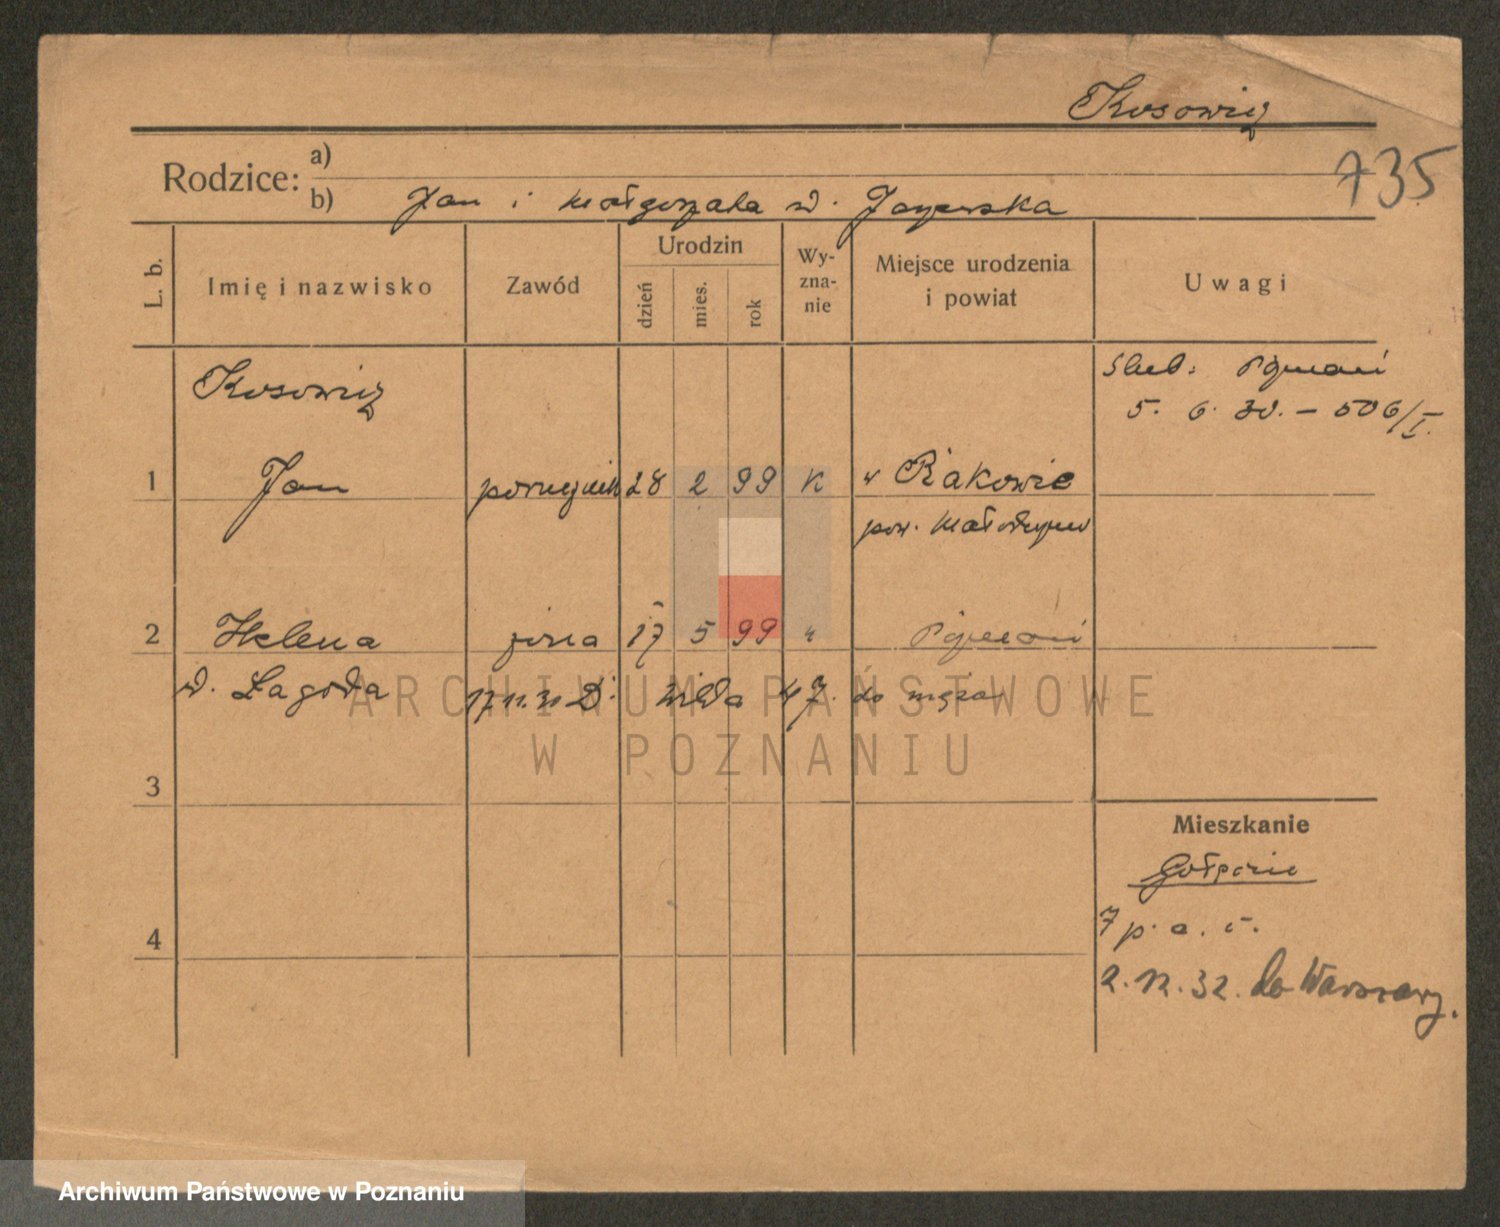 Kosowicz
735
Rodzice: a)
b) Jan i Małgorzata d.
L. b.
Imię i nazwisko
Zawód
Urodzin
dzień
mies.
rok
Wy-
zna-
nie
Miejsce urodzenia
i powiat
Uwagi
Kosowicz
Ślub: Poznań
5. 6. 30. – 506/I.
1 Jan porucznik 28 2 99 K w Rakowie
pow.
2 Helena żona 17 5 99 " Poznań
d. Łagoda 17.11.30 D: Wilda 47. do męża
ARCHIWUM PAŃSTWOWE
W POZNANIU
3
Mieszkanie
Gołęcin
7 p. a. c.
4
2. 12. 32. do Warszawy.
Archiwum Państwowe w Poznaniu